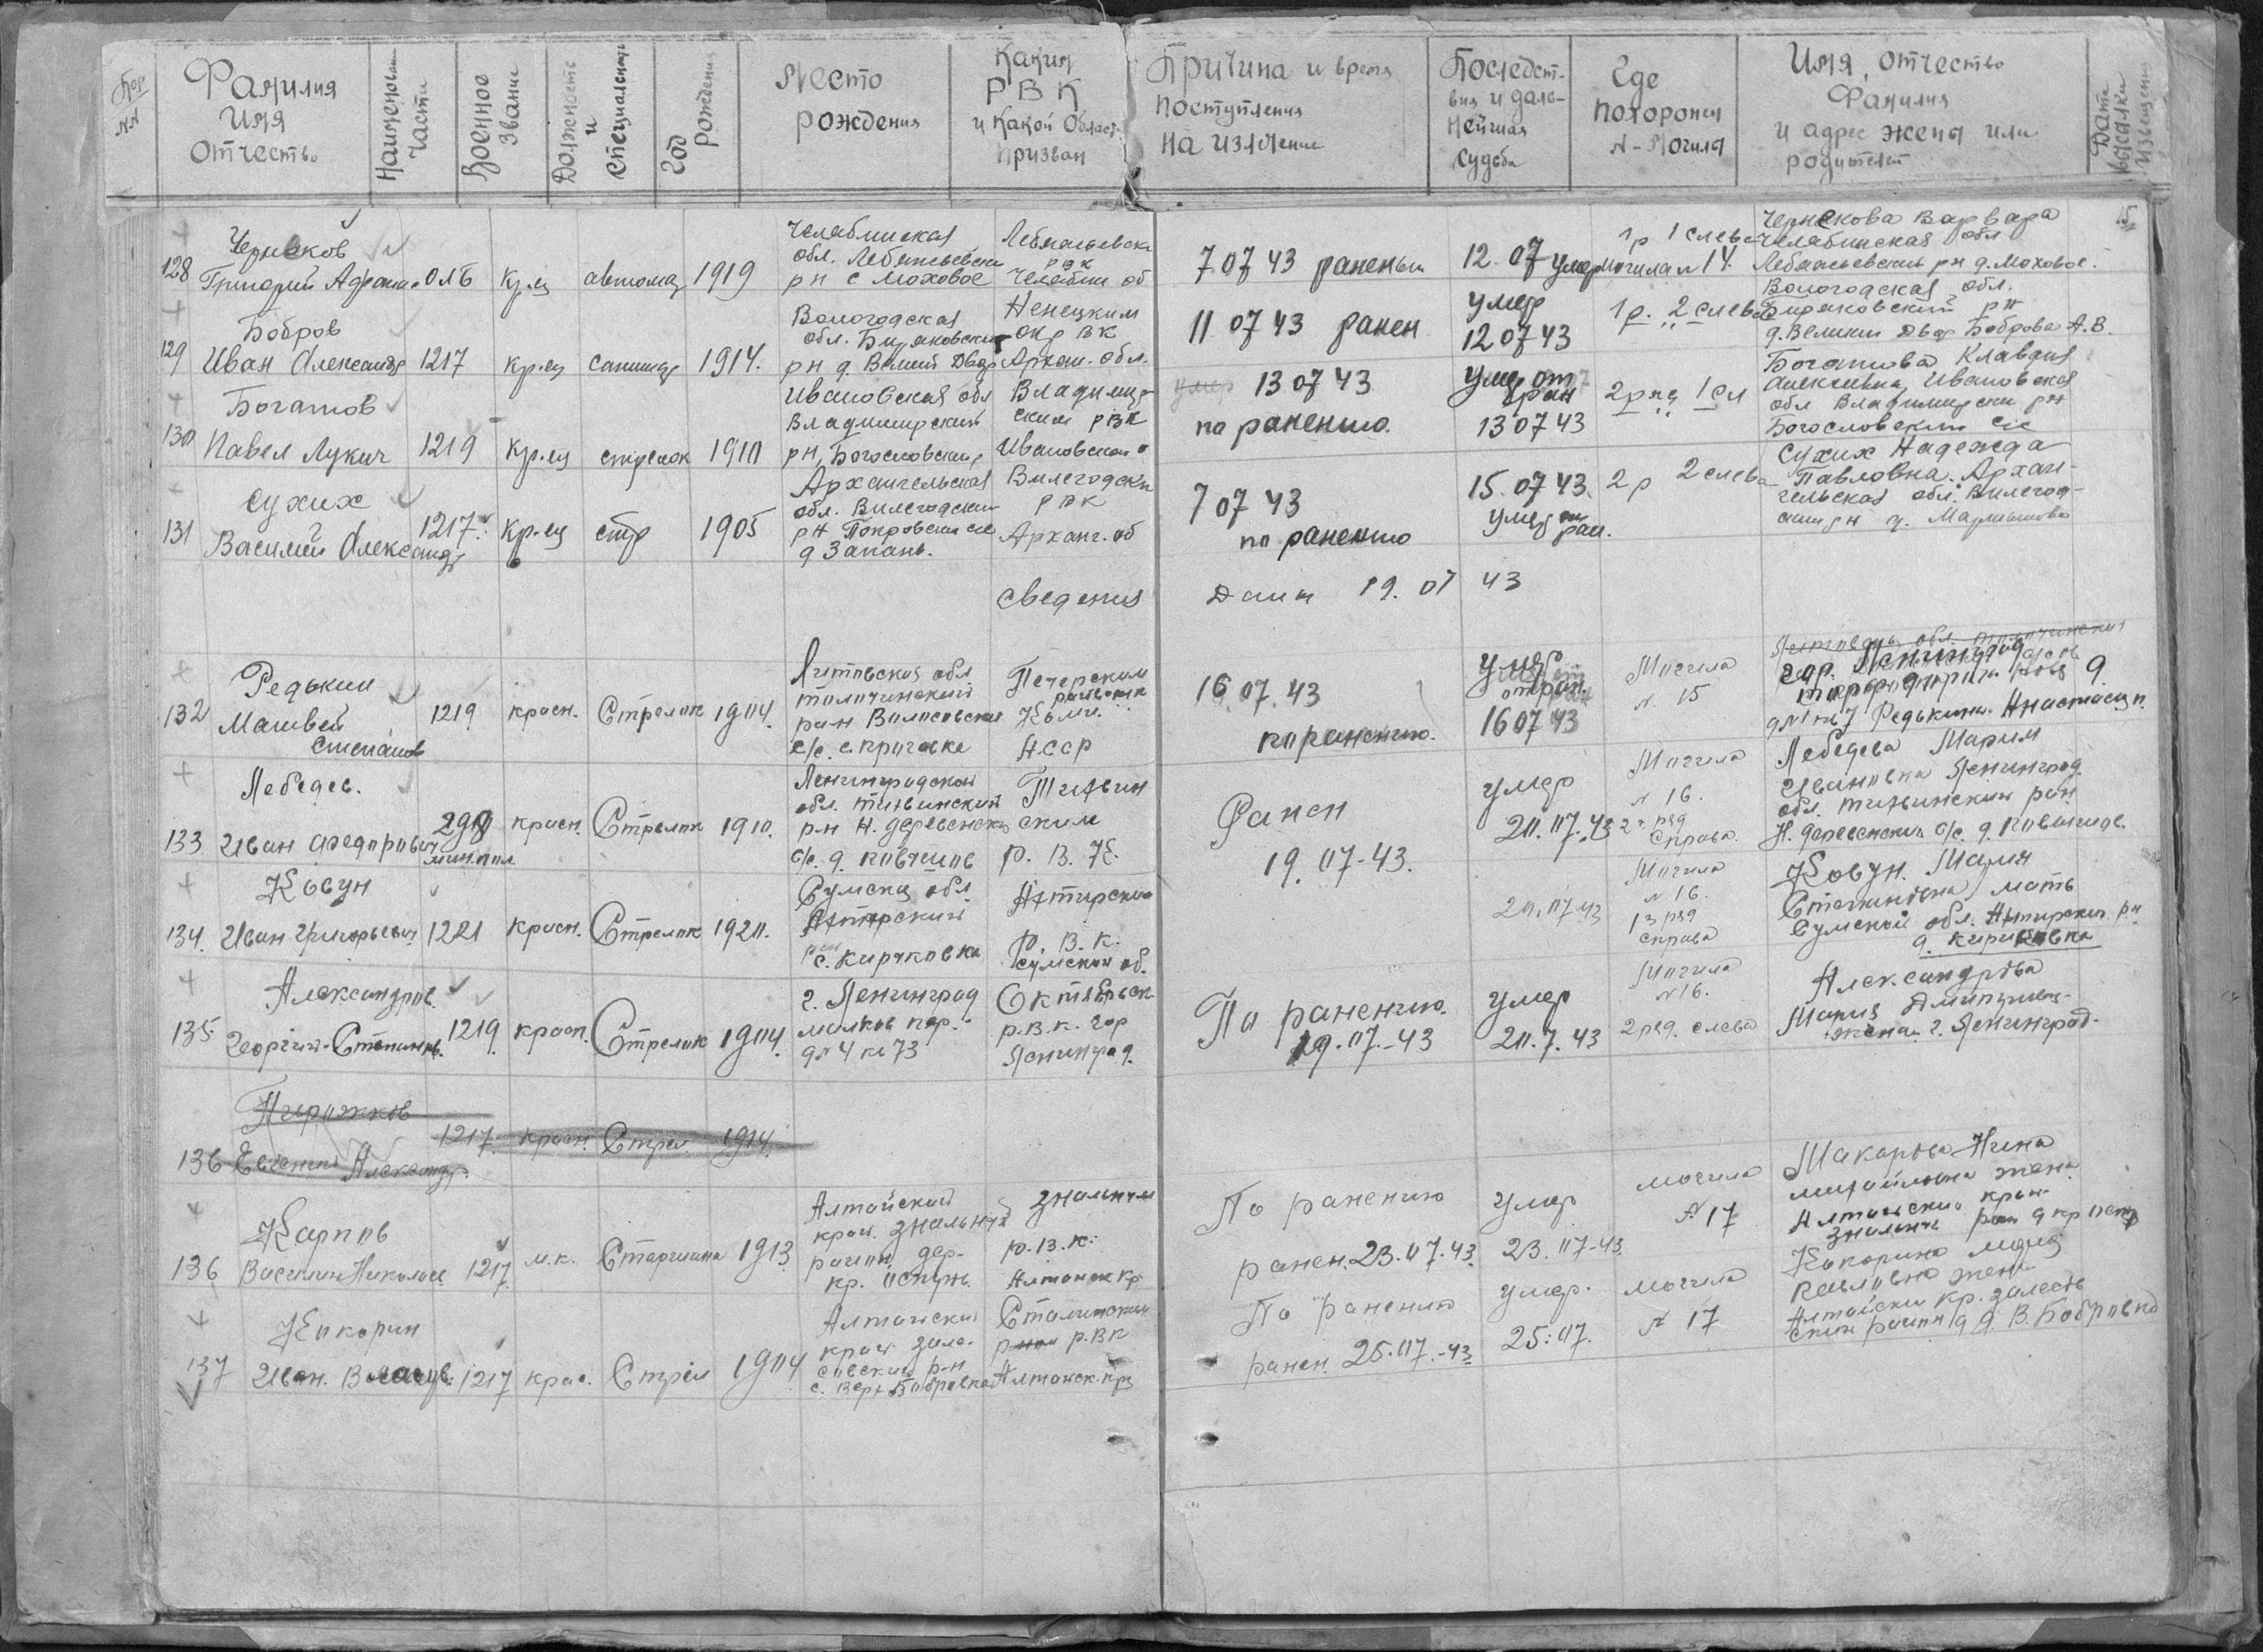 Пор NN
Фамилия Имя Отчество
Наименован части
Военное Звание
Должность и специальность
Год рождения
Место рождения
Каким РВК и какой област. призван
Причина и время поступления на излечение
Последствия и дальнейшая судьба
Где похоронен N-Могила
Имя, отчество Фамилия и адрес жены или родителей
Дата высылки извещения
128
Черноков
Григорий Афанас
ОЛБ
кр-ц
автомат
1919
Челябинская
обл. Лебяжьевски
рн с Моховое
Лебяжьевски
РВК
Челябин об
7 07 43 раненый
12.07 умер
1р 1 слева
могила N 14.
Чернокова Варвара
Челябинская обл
Лебяжьевский рн д. Моховое.
129
Бобров
Иван Александр
1217
кр-ец
санинстр
1914.
Вологодская
обл. Биряковский
рн д. Великий Двор
Ненецким
окр ВК
Архан. обл.
11 07 43 ранен
умер
12 07 43
1р. 2 слева
Вологодская обл.
Биряковский рн
д. Великий Двор Боброва А.В.
130
Богатов
Павел Лукич
1219
кр-ец
стрелок
1910
Ивановская обл
Владимирский
рн, Богословский
Владимирским РВК
Ивановской о
13 07 43
по ранению.
Умер от
ран
13 07 43
2 ряд 1 сл
Богатова Клавдия
Алексеевна, Ивановская
обл Владимирский рн
Богословский с/с
131
Сухих
Василий Александр
1217.
кр-ец
стр
1905
Архангельская
обл. Вилегодский
рн Покровский с/с
д Запань.
Вилегодски
РВК
Арханг. об
7 07 43
по ранению
15.07 43.
умер от ран.
2 р 2 слева
Сухих Надежда
Павловна. Архангельская
обл. Вилегодский рн
сведения Даны 19. 07 43
132
Редькин
Матвей
Степанов
1219
красн.
Стрелок
1904.
толочинский
с/с.
Печерским
Коми.
АССР
16.07.43
по ранению.
умер
от ран.
16 07 43
Могила
N. 15
гор. Ленинград
Редькина. Анастаси п.
133
Лебедев.
Иван Федорович
298
мин. пол.
красн.
Стрелок
1910.
Ленинградской
обл. Тихвинский
р-н Н. деревенск
с/с. д.
Тихвинским
Р. В. К.
Ранен
19. 07-43.
умер
20. 07. 43
Могила
N 16.
2й ряд
Справа.
Лебедева Мария
Ивановна Ленинград.
обл. Тихвинский рн.
Н. деревенский с/с. д.
134.
Ковун
Иван Григорьевич
1221
красн.
Стрелок
1920.
Сумская обл
Ахтырский
рн
с. Кириковка
Ахтырским
Р. В. К.
Сумской об.
20. 07 43
Могила
N 16.
13 ряд
справа
Ковун. Мария
Степановна мать
Сумской обл. Ахтырский рн
д. Кириковка
135.
Александров.
Георгий-Степанов.
1219.
красн.
Стрелок
1904.
г. Ленинград
малков пер.
д N 4 кв 73
Октябрьск
р.в.к. гор
Ленинград.
По ранению.
19. 07.-43
умер
20. 7. 43
Могила
N 16.
2 ряд. слева
Александрова
Мария Дмитриев-
жена. г. Ленинград.
136
Пирожков
Евгений Александр.
1217.
красн.
Стрел.
1914.
136
Карпов
Василий Николаев
1217.
м.к.
Старшина
1913
Алтайский
край. Знаменск
район, дер.
р.в.к.
Алтайск кр
По ранению
ранен. 23. 07. 43
умер
23. 07-43
могила
N 17
Макарова Нина
Михайловна жена
Алтайский край
137
Кокорин
Иван. Власов.
1217
крас.
Стрел
1904
Алтайский
край. Залесовский
р-н
с. Верх Бобровка
Сталинским
р.ВК
Алтайск. кр
По ранению
ранен. 25. 07.-43
умер.
25. 07.
могила
N 17
Кокорина
Павловна жена
Алтайский кр. Залесовский
район д. В. Бобровка